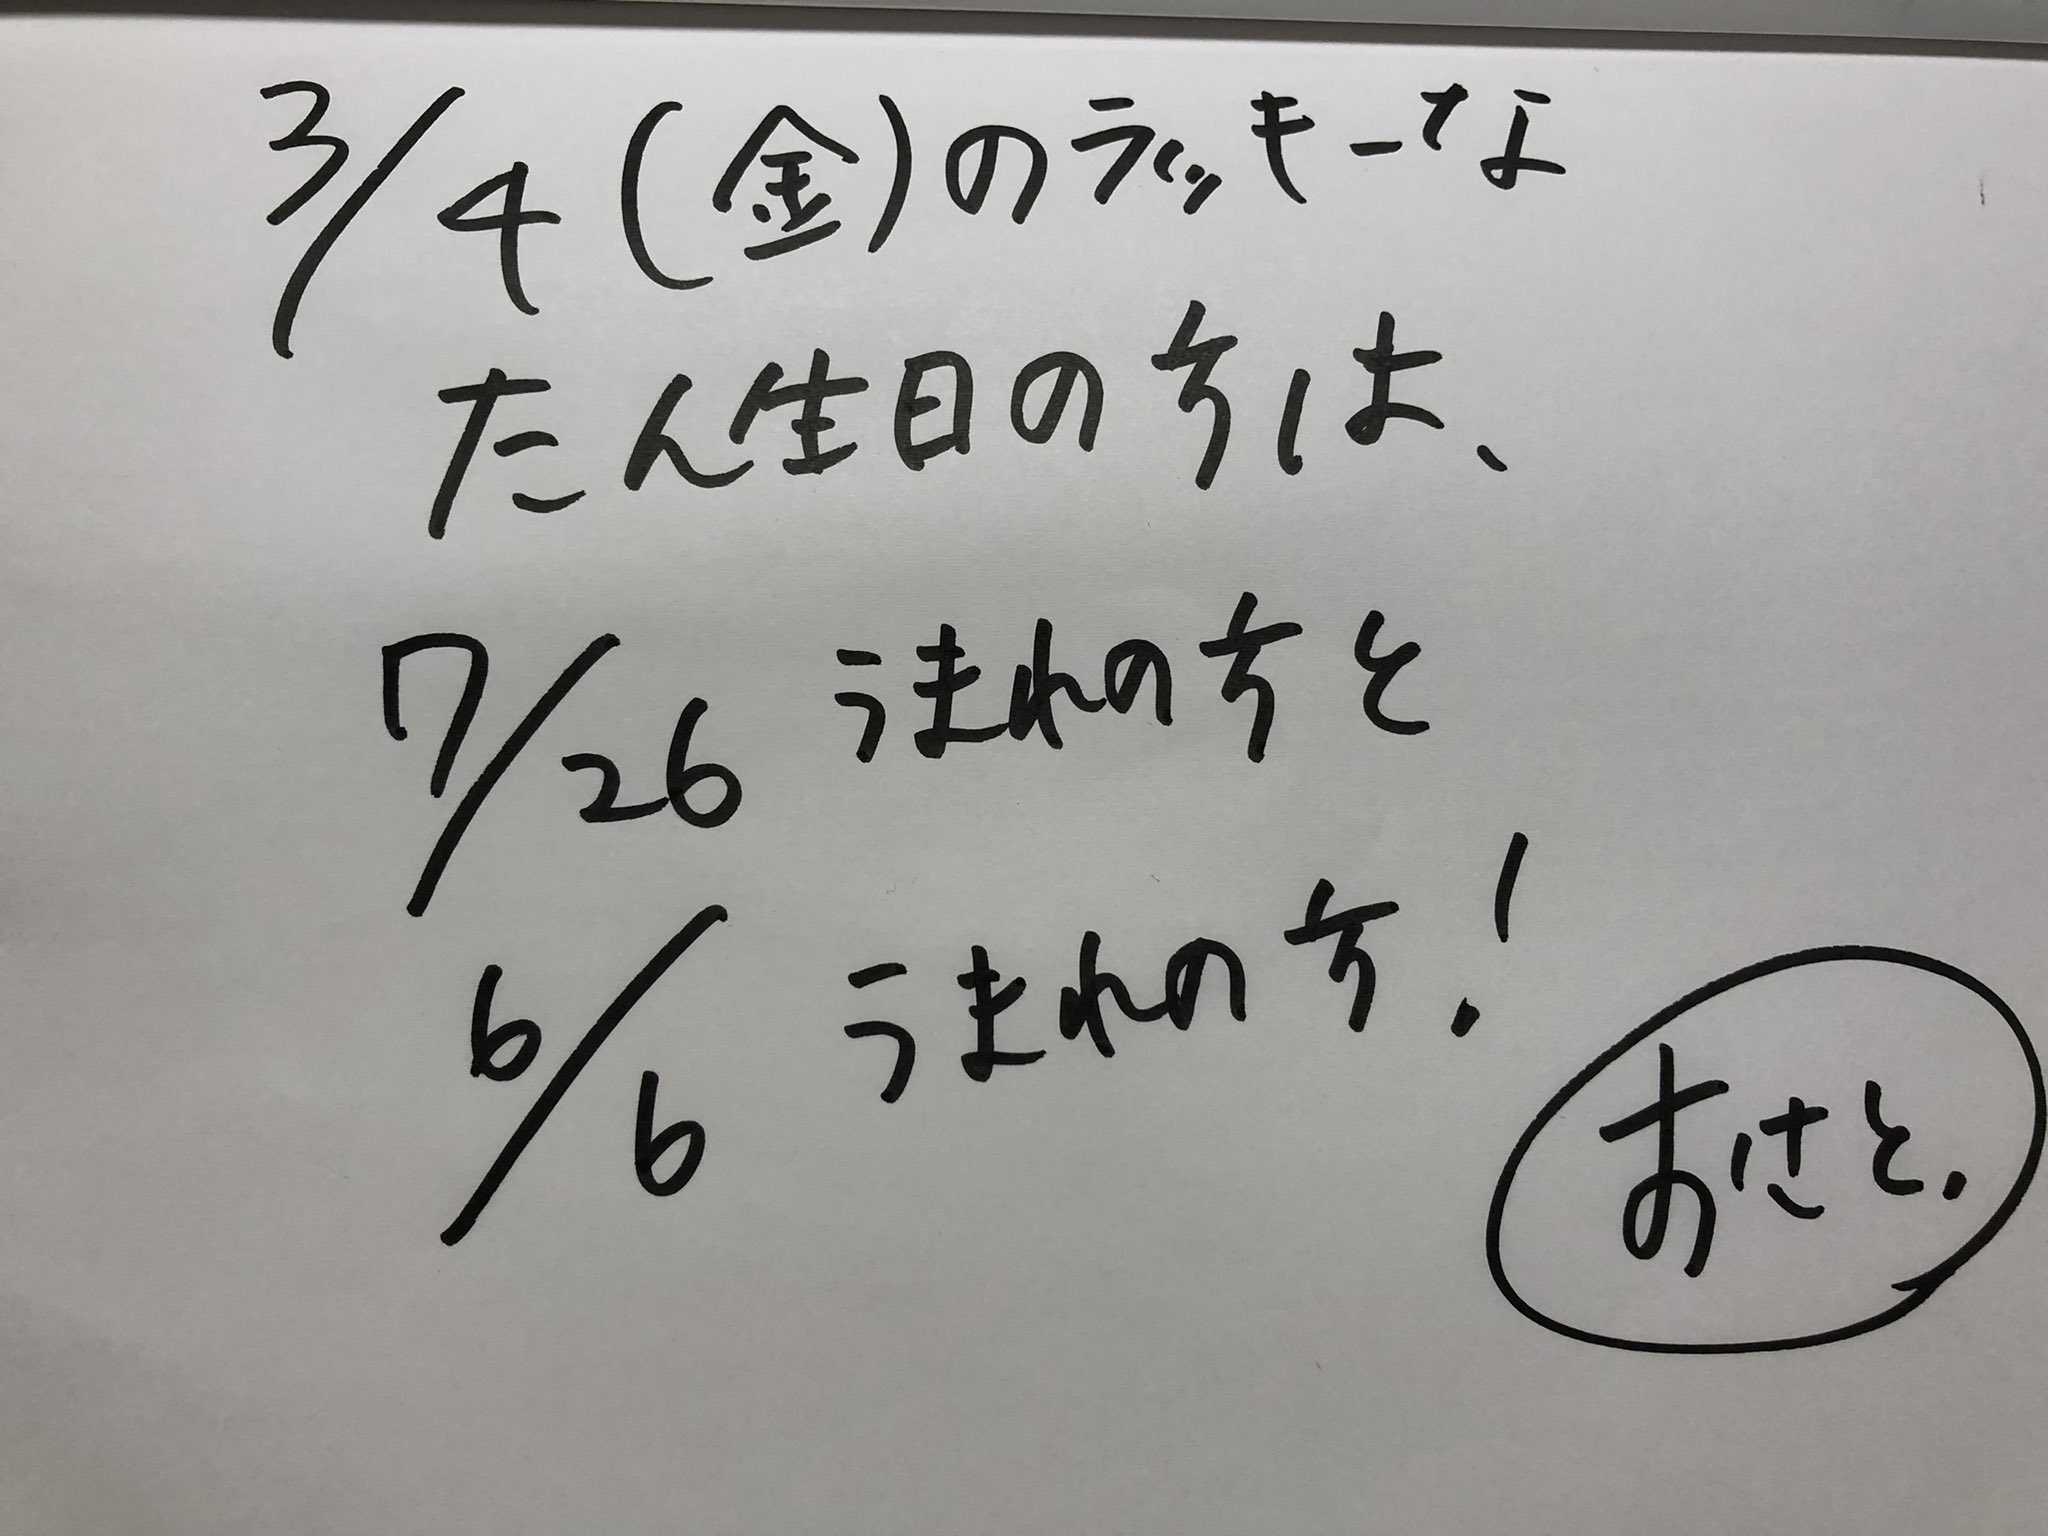 3/4(金)のラッキーな
たん生日の方は、
7/26 うまれの方と
6/6 うまれの方!
おさと.